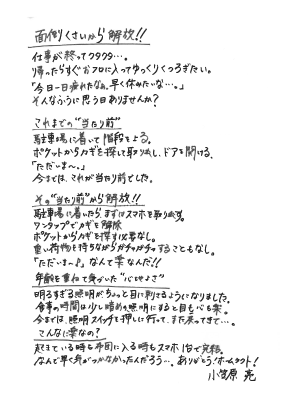 面倒くさいから解放!!
仕事が終ってクタクタ…。
帰ったらすぐおフロに入ってゆっくりくつろぎたい。
「今日一日疲れたなぁ、早く休みたいな…。」
そんなふうに思う日ありませんか?
これまでの“当たり前”
駐車場に着いて階段をよる。
ポケットからカギを探して取り出し、ドアを開ける。
「ただいま〜。」
今までは、これが当たり前でした。
その“当たり前”から解放!!
駐車場に着いたら、まずはスマホを取り出す。
ワンタップでカギを解除
ポケットからカギを探す必要なし。
重い荷物を持ちながらガチャガチャすることもなし。
「ただいま〜♪。なんて楽なんだ!!
年齢を重ねて気づいた“心地よさ”
明るすぎる照明がちょっと目に刺さるようになりました。
食事の時間は少し暗めの照明にすると目も心も楽。
今までは、照明スイッチを押しに行って、また戻ってきて…。
こんなに楽なの?
起きている時も布団に入る時もスマホ1台で完結。
なんで早く気がつかなかったんだろう…。ありがとう!ホームタクト!
小笠原 亮